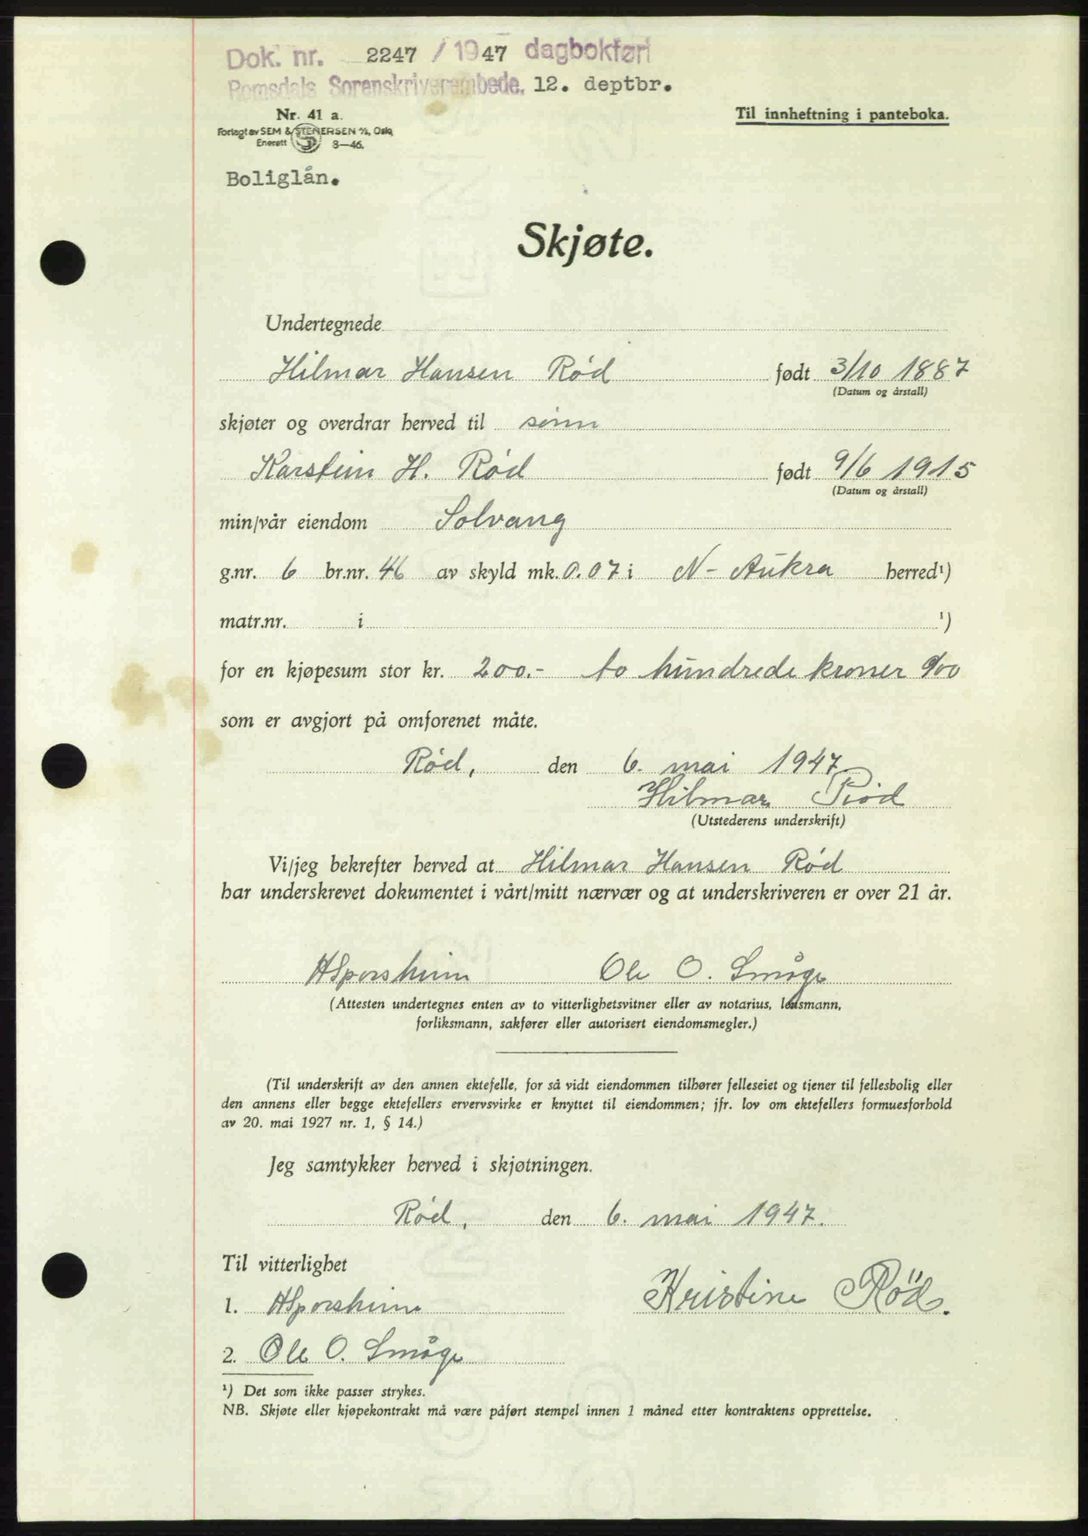 Dok. nr. 2247 / 1947 dagbokført
Romsdals Sorenskriverembede. 12. deptbr.
Nr. 41 a.
Til innheftning i panteboka.
Forlagt av SEM & STENERSEN A/S, Oslo
Enerett 3—46.
Boliglån.
Skjøte.
Undertegnede
Hilmar Hansen Rød født 3/10 1887
(Datum og årstall)
skjøter og overdrar herved til sønn
Karstein H. Rød født 9/6 1915
(Datum og årstall)
min/vår eiendom Solvang
g.nr. 6 br.nr. 46 av skyld mk. 0.07 i N- Aukra herred¹)
matr.nr. i ¹)
for en kjøpesum stor kr. 200.- to hundrede kroner 0/00
som er avgjort på omforenet måte.
Rød, den 6. mai 1947
Hilmar Rød
(Utstederens underskrift)
Vi/jeg bekrefter herved at Hilmar Hansen Rød
har underskrevet dokumentet i vårt/mitt nærvær og at underskriveren er over 21 år.
ASporsheim Ole O. Småge
(Attesten undertegnes enten av to vitterlighetsvitner eller av notarius, lensmann,
forliksmann, sakfører eller autorisert eiendomsmegler.)
(Til underskrift av den annen ektefelle, for så vidt eiendommen tilhører felleseiet og tjener til fellesbolig eller
den annens eller begge ektefellers ervervsvirke er knyttet til eiendommen; jfr. lov om ektefellers formuesforhold
av 20. mai 1927 nr. 1, § 14.)
Jeg samtykker herved i skjøtningen.
Rød, den 6. mai 1947.
Til vitterlighet
1. ASporsheim Kristine Röd.
2. Ole O. Småge
¹) Det som ikke passer strykes.
NB. Skjøte eller kjøpekontrakt må være påført stempel innen 1 måned etter kontraktens opprettelse.